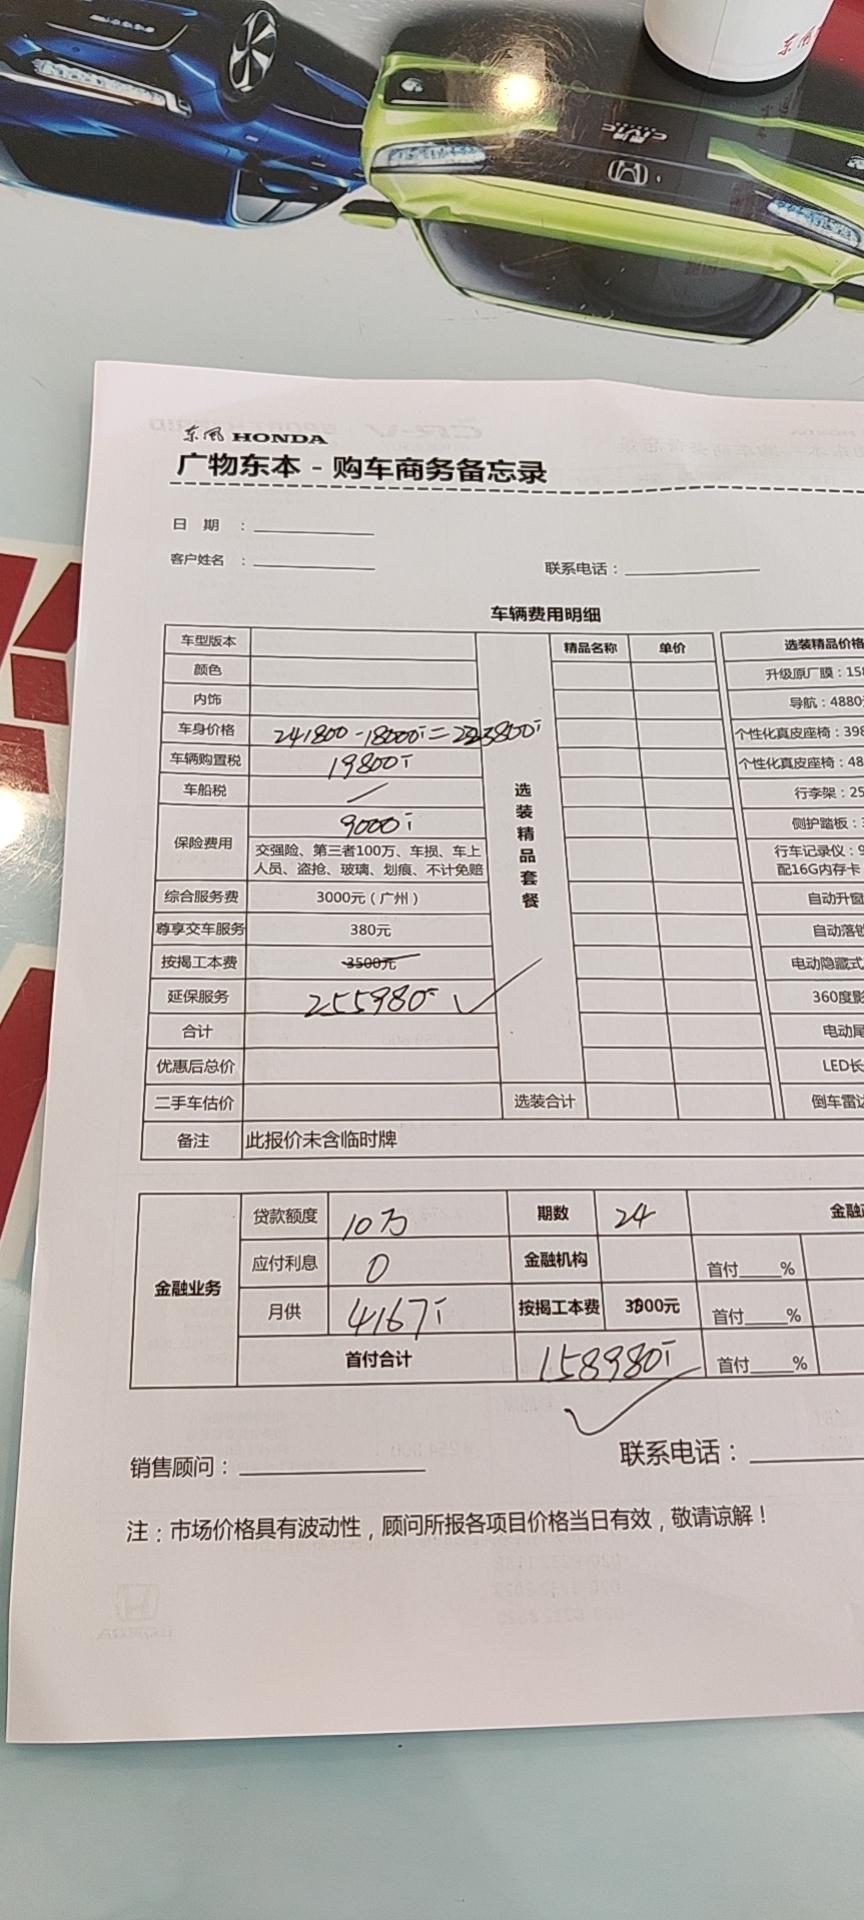 东风 HONDA
广物东本 - 购车商务备忘录
日 期 ：
客户姓名 ： 联系电话：
车辆费用明细
车型版本 精品名称 单价 选装精品价格
颜色 升级原厂膜：15
内饰 导航：4880
车身价格 241800-18000元=223800元 个性化真皮座椅：398
车辆购置税 19800元 个性化真皮座椅：48
车船税 / 行李架：25
选装精品套餐
保险费用 9000元 侧护踏板：
交强险、第三者100万、车损、车上 行车记录仪：9
人员、盗抢、玻璃、划痕、不计免赔 配16G内存卡
综合服务费 3000元（广州） 自动升窗
尊享交车服务 380元 自动落锁
按揭工本费 3500元 电动隐藏式
延保服务 255980元 ✓ 360度影
合计 电动尾
优惠后总价 LED长
二手车估价 选装合计 倒车雷达
备注 此报价未含临时牌
金融业务
贷款额度 10万 期数 24 金融
应付利息 0 金融机构 首付____%
月供 4167元 按揭工本费 3000元 首付____%
首付合计 158980元 ✓ 首付____%
销售顾问： 联系电话：
注：市场价格具有波动性，顾问所报各项目价格当日有效，敬请谅解！